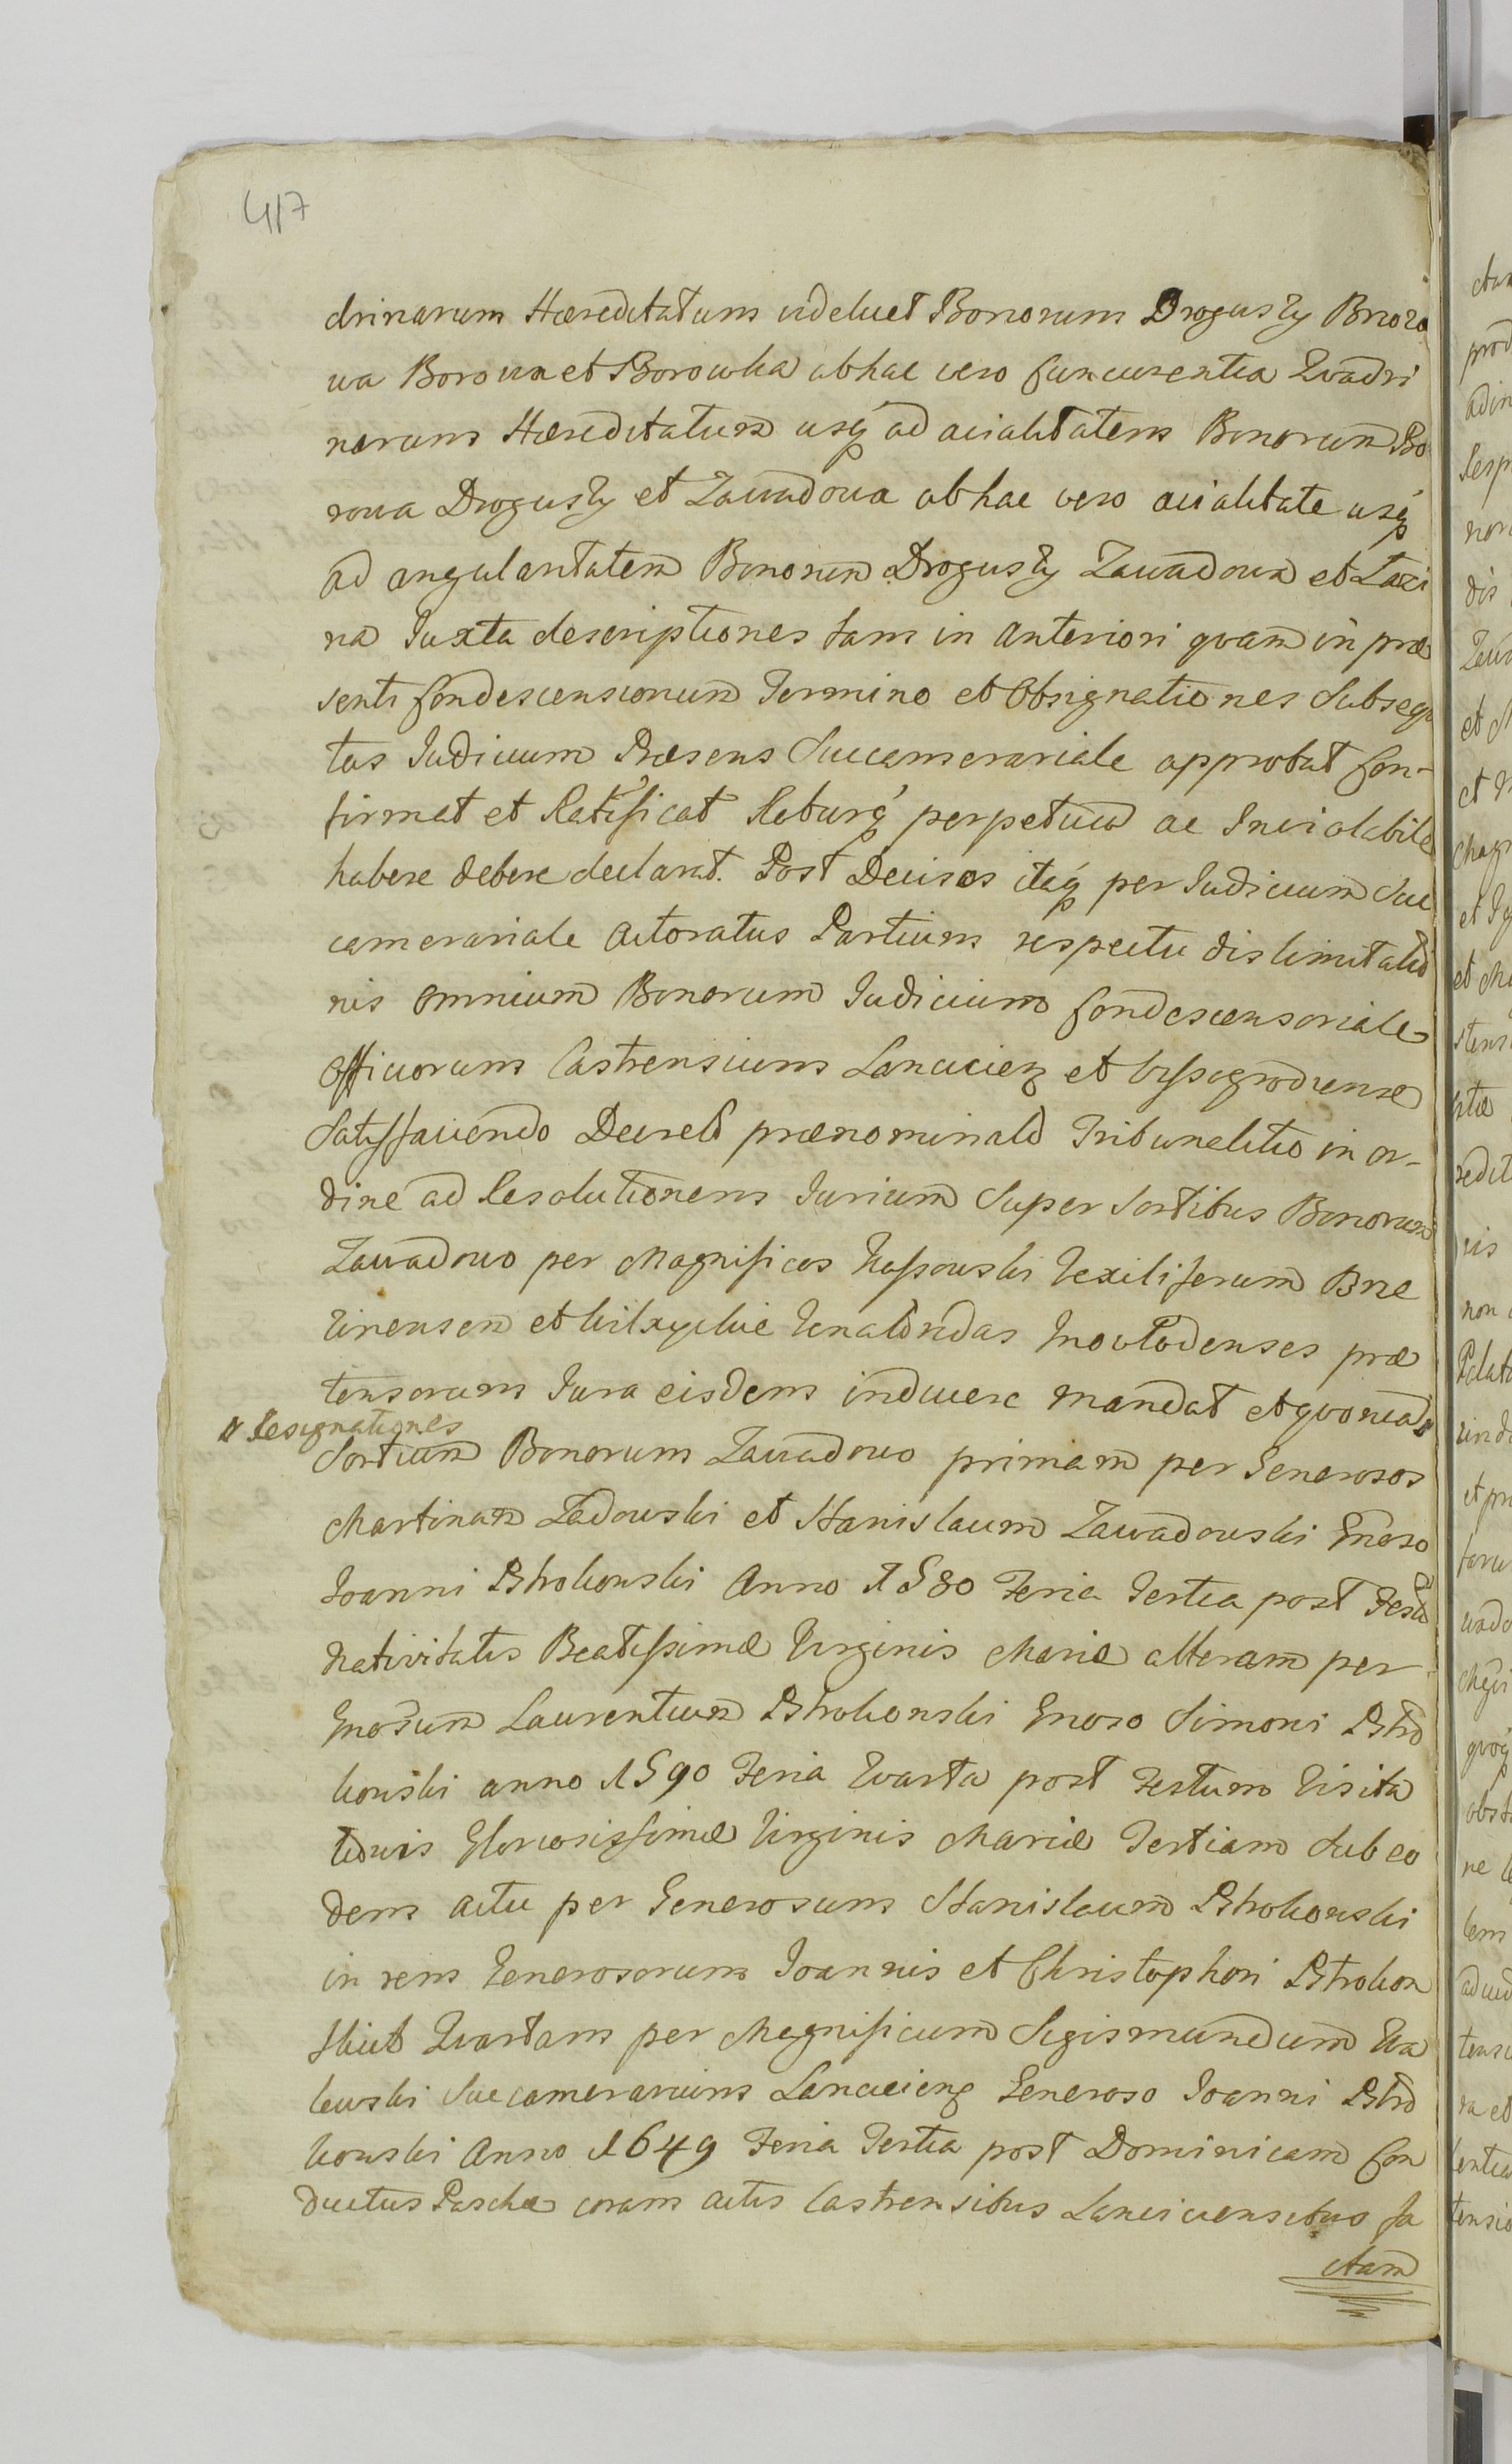 417
drinarum Hæreditatum videlicet Bonorum Droguszy Brozo
wa Borowa et Borowka ab hac vero Concurrentia Quadri
narum Hæreditatum usq ad acialitatem Bonorum Bo
rowa Droguszy et Zawadowa ab hac vero acialitate usq
ad angularitatem Bonorum Droguszy Zawadowa et Łazi
na Juxta descriptiones tam in anteriori qvam in præ
senti Condescensionum Termino et Obsignationes Subsequ
tas Judicium Præsens Succamerariale approbat Con-
firmat et Ratificat Roburq perpetuum ac Inviolabile
habere debere declarat. Post Decisos itaq per Judicium Suc
camerariale Actoratus Partium respectu dislimitatio
nis omnium Bonorum Judicium Condescensoriale
Officiorum Castrensium Lancicien et Wyssogrodiense
Satisfaciendo Decreto prænominato Tribunalitio in or-
dine ad Resolutionem Jurium Super Sortibus Bonorum
Zawadowo per Magnificos Nassowski Vexiliferum Brze
zinensem et Venatoridas Inowlodenses præ
tensorum Jura eisdem inducere mandat et qvoniam
" Resignationes
Sortium Bonorum Zawadowo primam per Generosos
Martinum Zadowski et Stanislaum Zawadowski Gnoso
Joanni Pstrokonski Anno 1580 Feria Tertia post Festu
Nativitatis Beatissimæ Virginis Mariæ alteram per
Gnosum Laurentium Pstrokonski Gnoso Simoni Pstro
konski anno 1590 Feria Quarta post Festum Visita
tionis Gloriosissimæ Virginis Mariæ Tertiam Sub eo
dem actu per Generosum Stanislaum Pstrokonski
in rem Generosorum Joannis et Christophori Pstrokon
skich Quartam per Magnificum Sigismundum Wa
lewski Succamerarium Lancicien Generoso Joanni Pstro
konski Anno 1649 Feria Tertia post Dominicam Con
ductus Paschæ coram actis Castrensibus Lanciciensibus fa
ctam